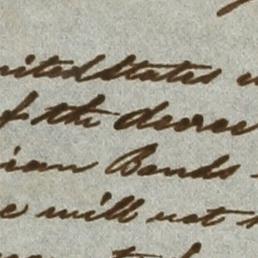 nited States
f the decree
ian Bonds
e will not